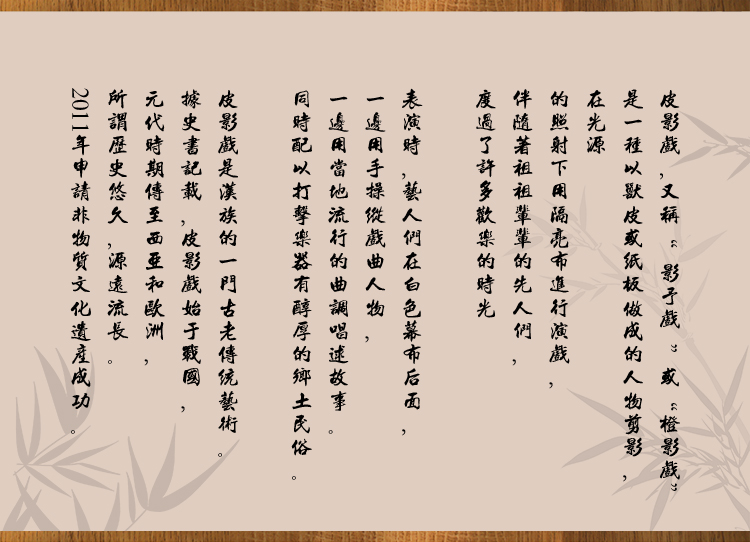 皮影戲，又稱“影子戲”或“橙影戲”
是一種以獸皮或紙板做成的人物剪影，
在光源
的照射下用隔亮布進行演戲，
伴隨著祖祖輩輩的先人們，
度過了許多歡樂的時光
表演時，藝人們在白色幕布后面，
一邊用手操縱戲曲人物，
一邊用當地流行的曲調唱述故事。
同時配以打擊樂器有醇厚的鄉土民俗。
皮影戲是漢族的一門古老傳統藝術。
據史書記載，皮影戲始于戰國，
元代時期傳至西亞和歐洲，
所謂歷史悠久，源遠流長。
2011年申請非物質文化遺產成功。